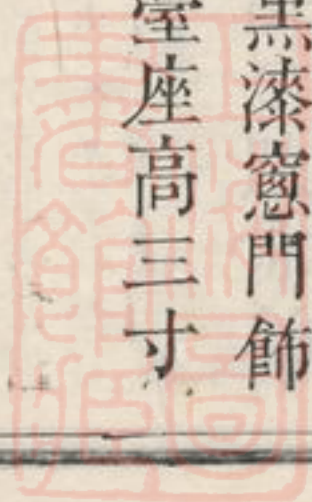 黑漆窻門飾
臺座高三寸